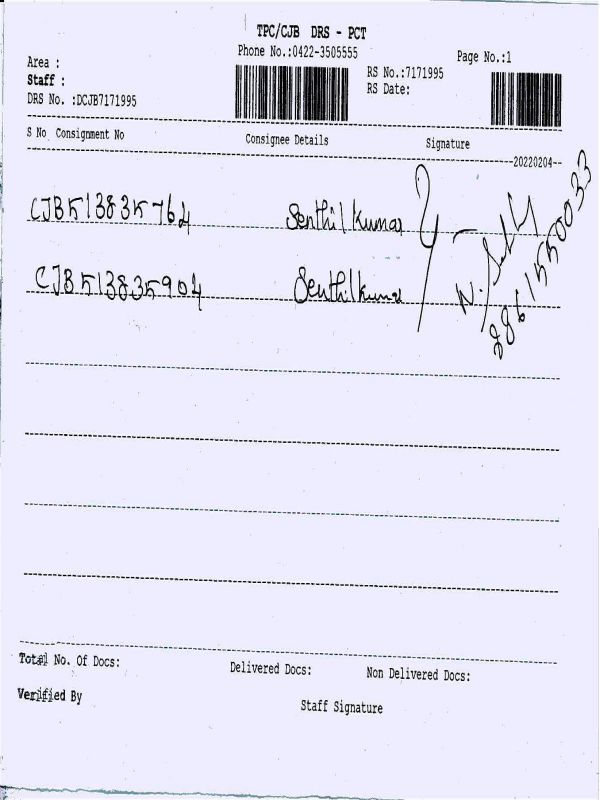 TPC/CJB DRS - PCT
Phone No.:0422-3505555
Page No.:1
Area :
RS No.:7171995
Staff :
RS Date:
DRS No. :DCJB7171995
S No Consignment No Consignee Details Signature
20220204
CJB513835762 Senthilkumar
CJB513835904 Senthilkumar
N.
8861550033
Total No. Of Docs: Delivered Docs: Non Delivered Docs:
Verified By
Staff Signature